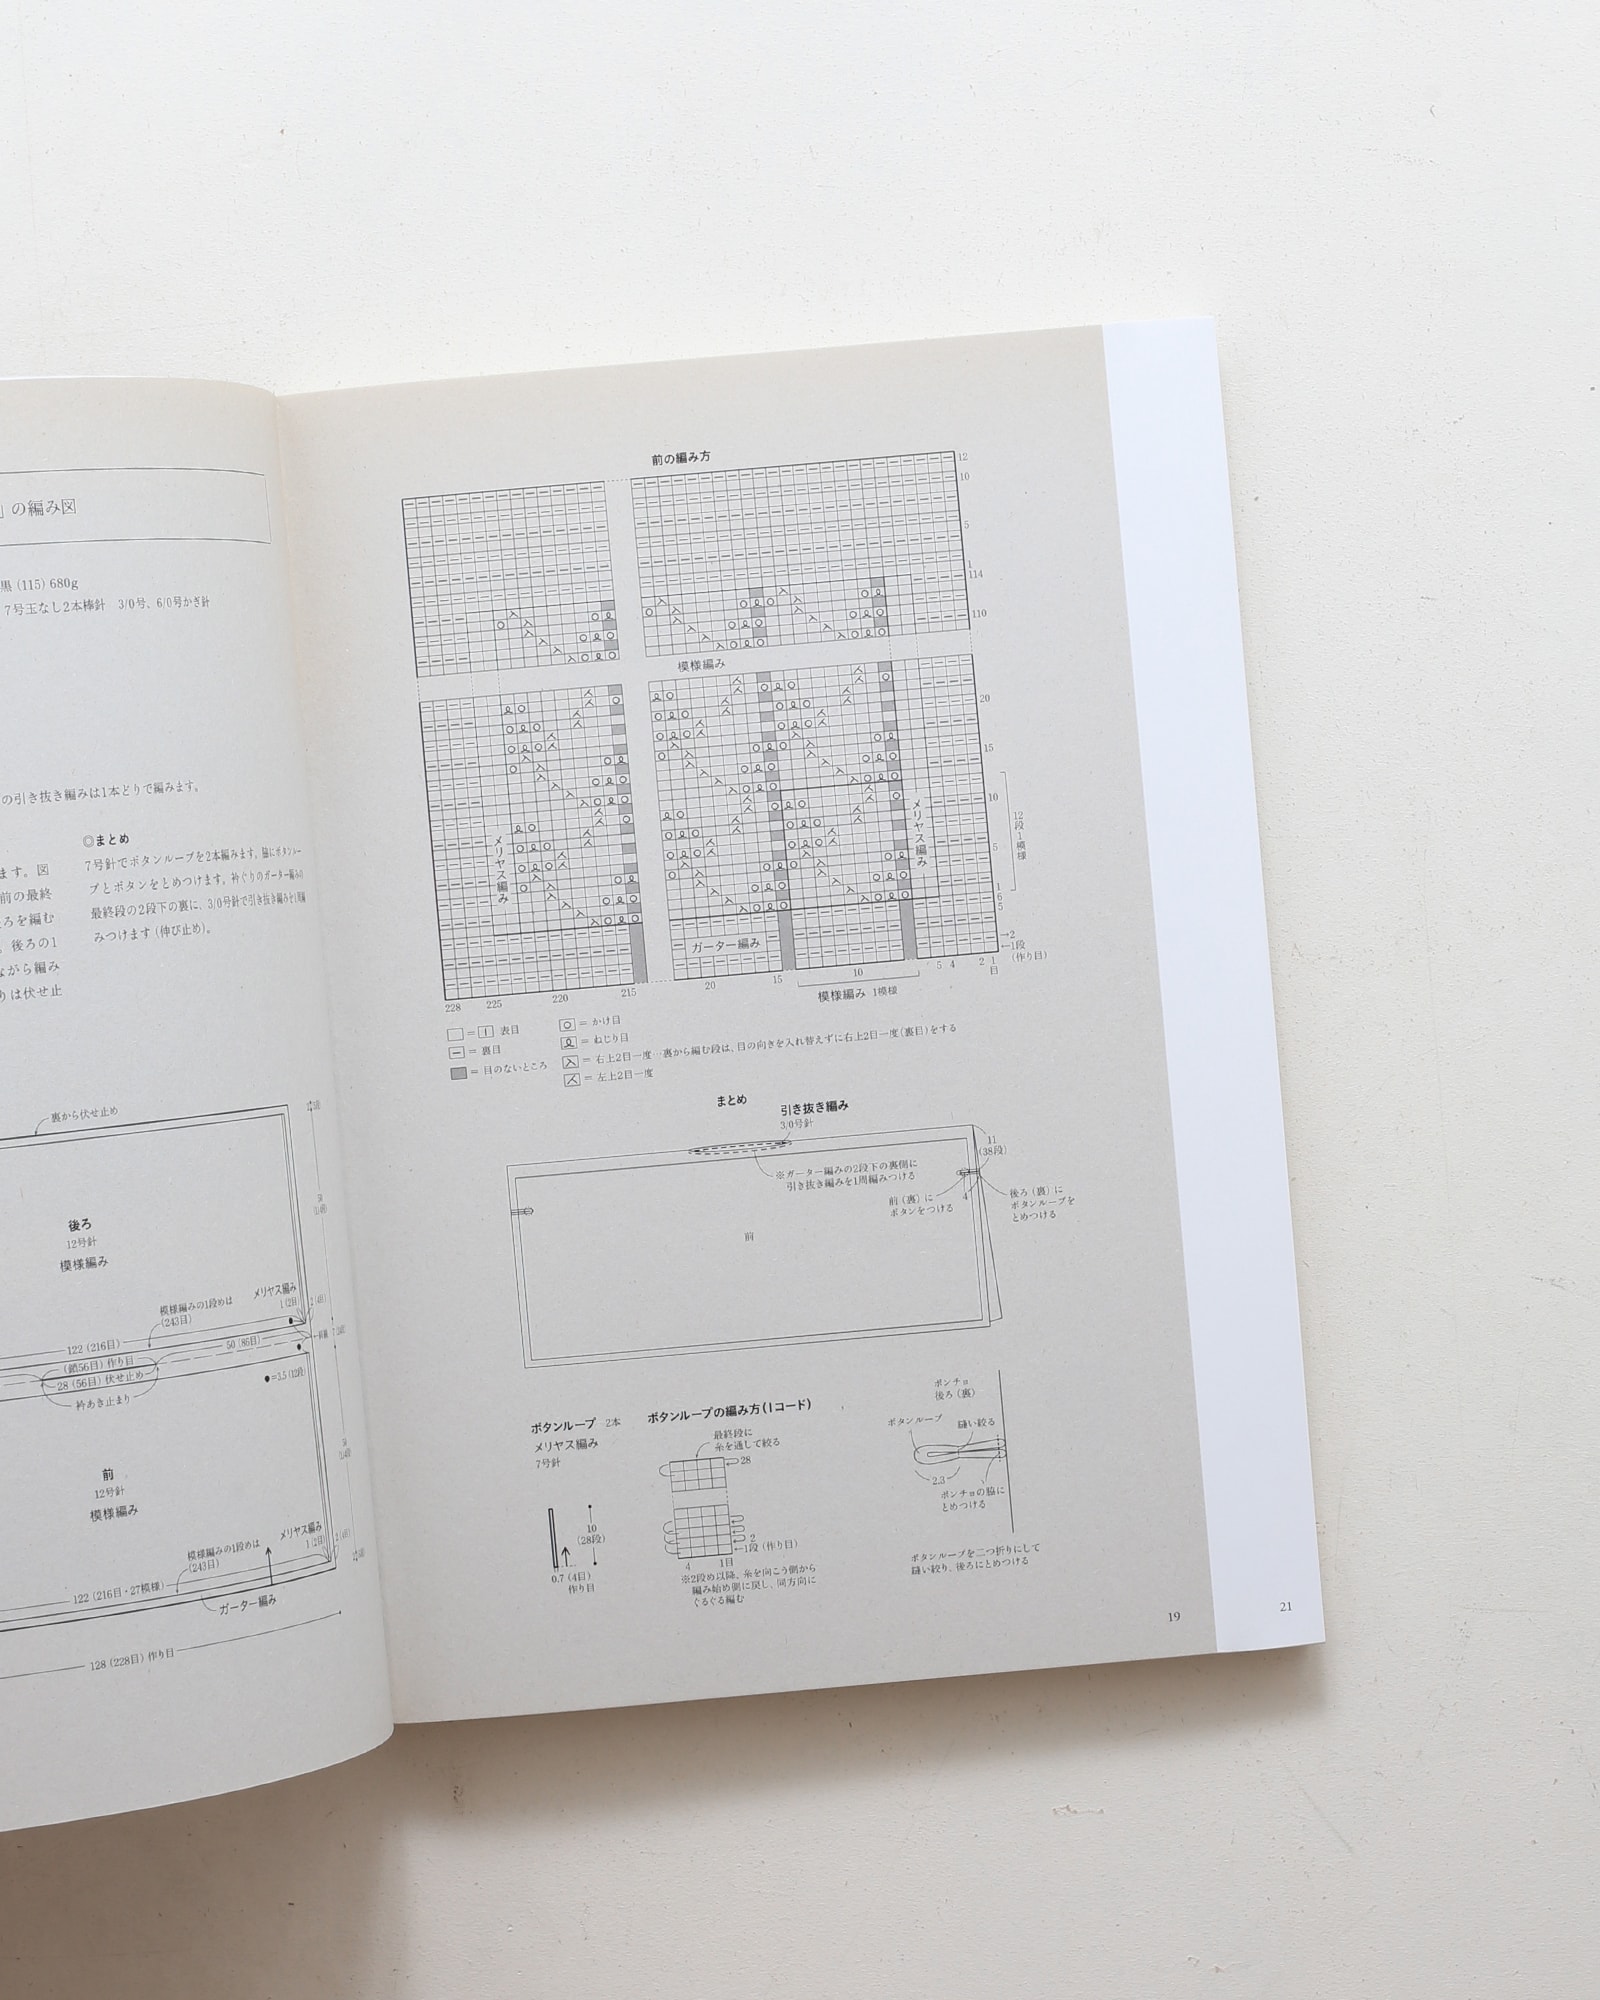 」の編み図
黒 (115) 680g
7号玉なし2本棒針　3/0号、6/0号かぎ針
の引き抜き編みは1本どりで編みます。
ます。図
前の最終
ろを編む
。後ろの1
ながら編み
りは伏せ止
◎まとめ
7号針でボタンループを2本編みます。脇にボタンルー
プとボタンをとめつけます。衿ぐりのガーター編みの
最終段の2段下の裏に、3/0号針で引き抜き編みを1周編
みつけます（伸び止め）。
裏から伏せ止め
後ろ
12号針
模様編み
模様編みの1段めは
(243目)
メリヤス編み
1 (2目)
2 (4目)
122 (216目)
50 (86目)
(鎖56目) 作り目
28 (56目) 伏せ止め
衿あき止まり
●=3.5 (12段)
前
12号針
模様編み
模様編みの1段めは
(243目)
メリヤス編み
1 (2目)
2 (4目)
122 (216目・27模様)
ガーター編み
128 (228目) 作り目
前の編み方
12
10
5
1
114
110
模様編み
20
15
10
5
1
6
5
→2
←1段
(作り目)
12段1模様
メリヤス編み
メリヤス編み
ガーター編み
228
225
220
215
20
15
10
5
4
2
1目
模様編み 1模様
□ = | 表目
― = 裏目
= 目のないところ
○ = かけ目
= ねじり目
= 右上2目一度…裏から編む段は、目の向きを入れ替えずに右上2目一度(裏目)をする
= 左上2目一度
まとめ
引き抜き編み
3/0号針
※ガーター編みの2段下の裏側に
引き抜き編みを1周編みつける
11
(38段)
4
前（裏）に
ボタンをつける
後ろ（裏）に
ボタンループを
とめつける
前
ボタンループ 2本
メリヤス編み
7号針
10
(28段)
0.7 (4目)
作り目
ボタンループの編み方(Iコード)
最終段に
糸を通して絞る
28
2
←1段 (作り目)
4
1目
※2段め以降、糸を向こう側から
編み始め側に戻し、同方向に
ぐるぐる編む
ポンチョ
後ろ（裏）
ボタンループ
縫い絞る
2.3
ポンチョの脇に
とめつける
ボタンループを二つ折りにして
縫い絞り、後ろにとめつける
19
21